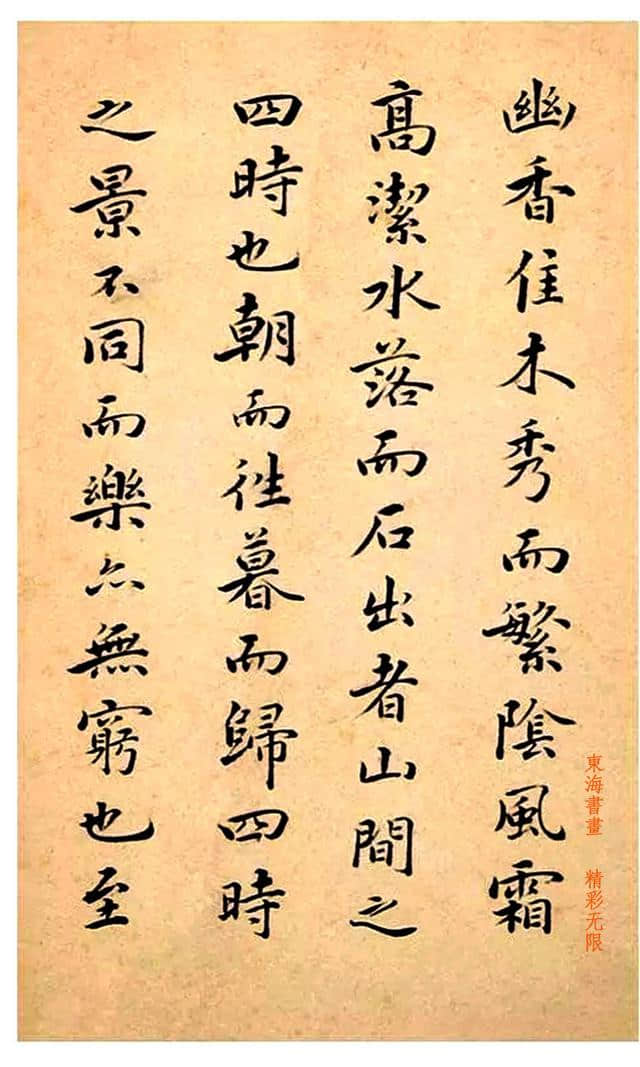 幽香佳木秀而繁陰風霜
高潔水落而石出者山間之
四時也朝而往暮而歸四時
之景不同而樂亦無窮也至
東海書畫 精彩无限